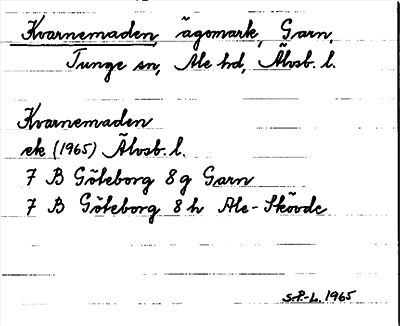 Kvarnemaden, ägomark, Garn,
Tunge sn, Ale hd, Älvsb. l.
Kvarnemaden
ek (1965) Älvsb. l.
7 B Göteborg 8 g Garn
7 B Göteborg 8 h Ale-Skövde
S.P.-L. 1965